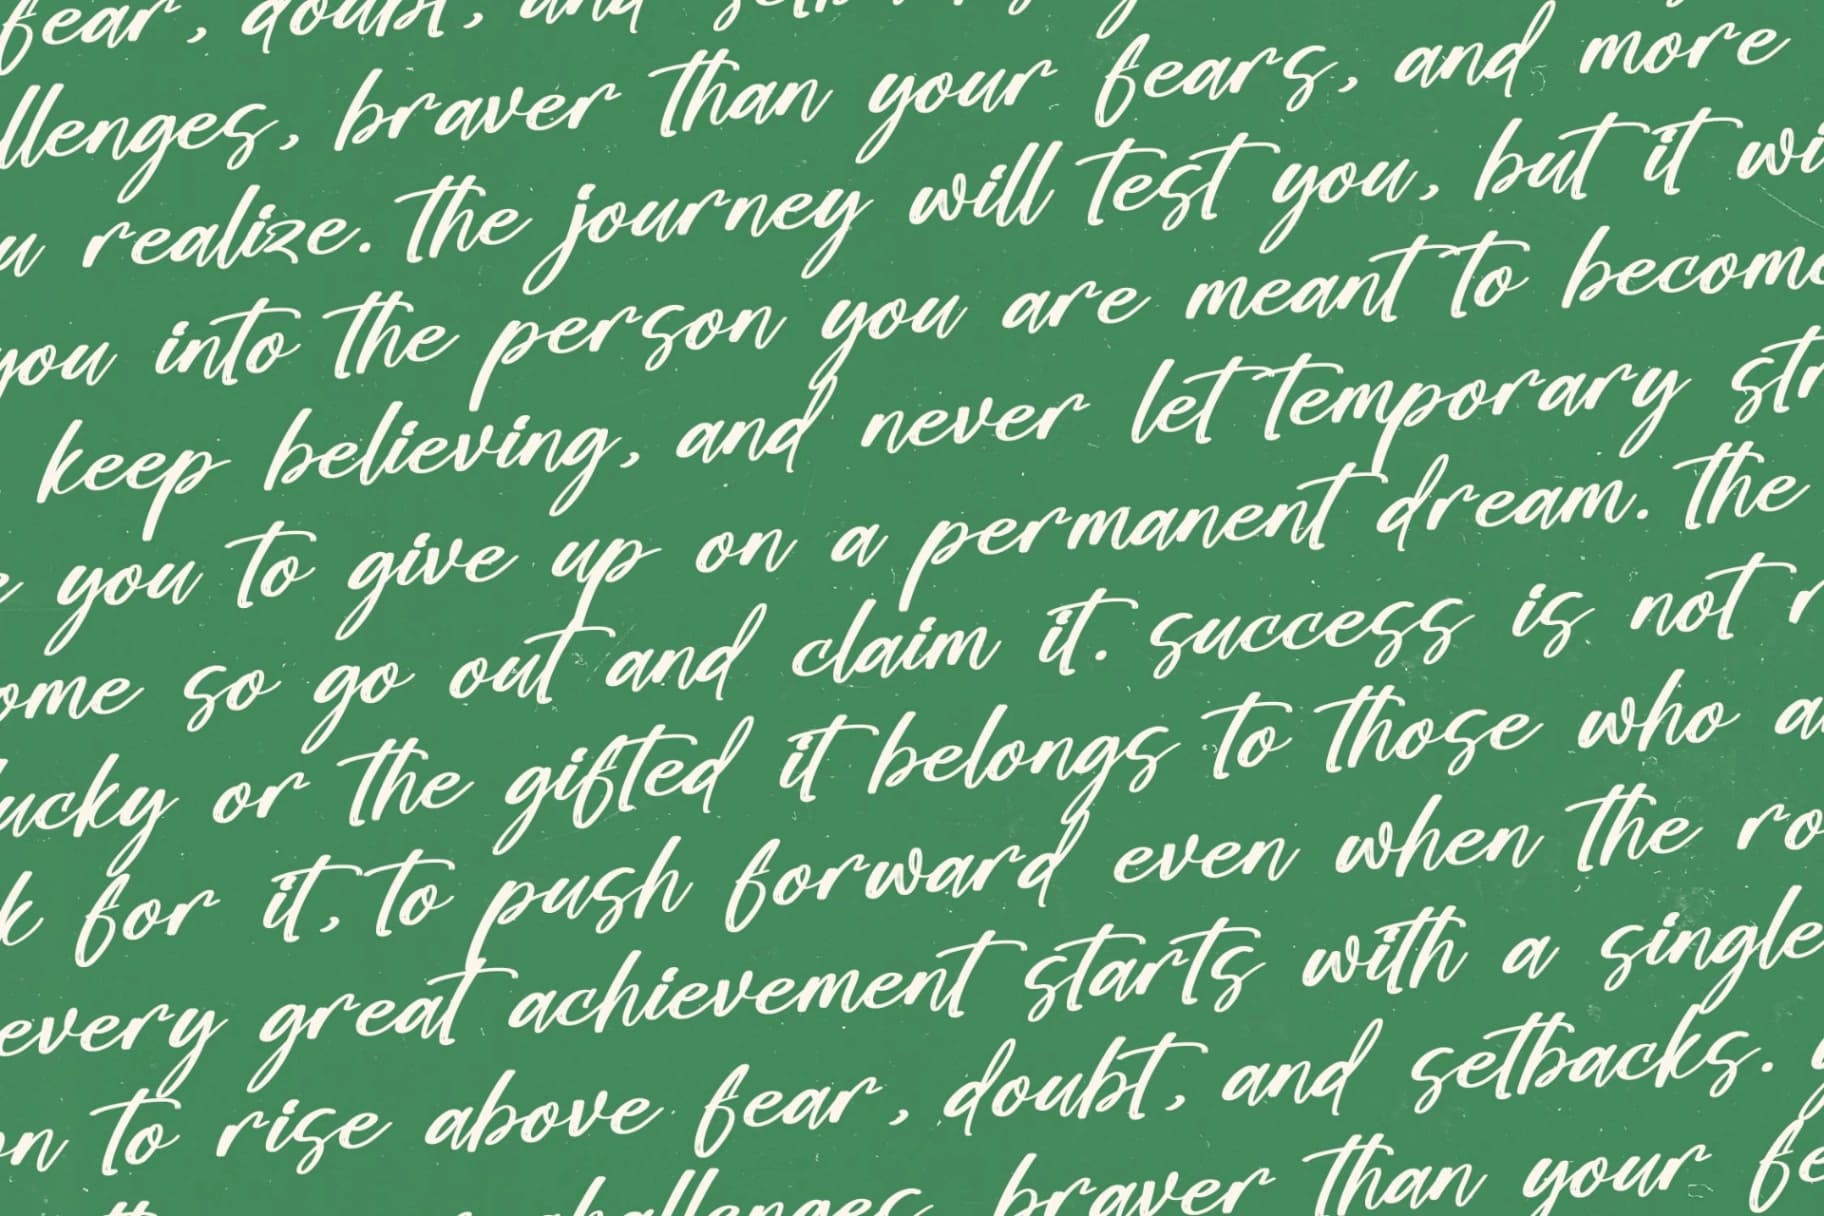 fear, doubt, and
llenges, braver than your fears, and more
u realize. the journey will test you, but it wi
you into the person you are meant to become
keep believing, and never let temporary str
e you to give up on a permanent dream. the
ome so go out and claim it. success is not r
lucky or the gifted it belongs to those who a
k for it, to push forward even when the ro
every great achievement starts with a single
on to rise above fear, doubt, and setbacks. y
challenges, braver than your fe